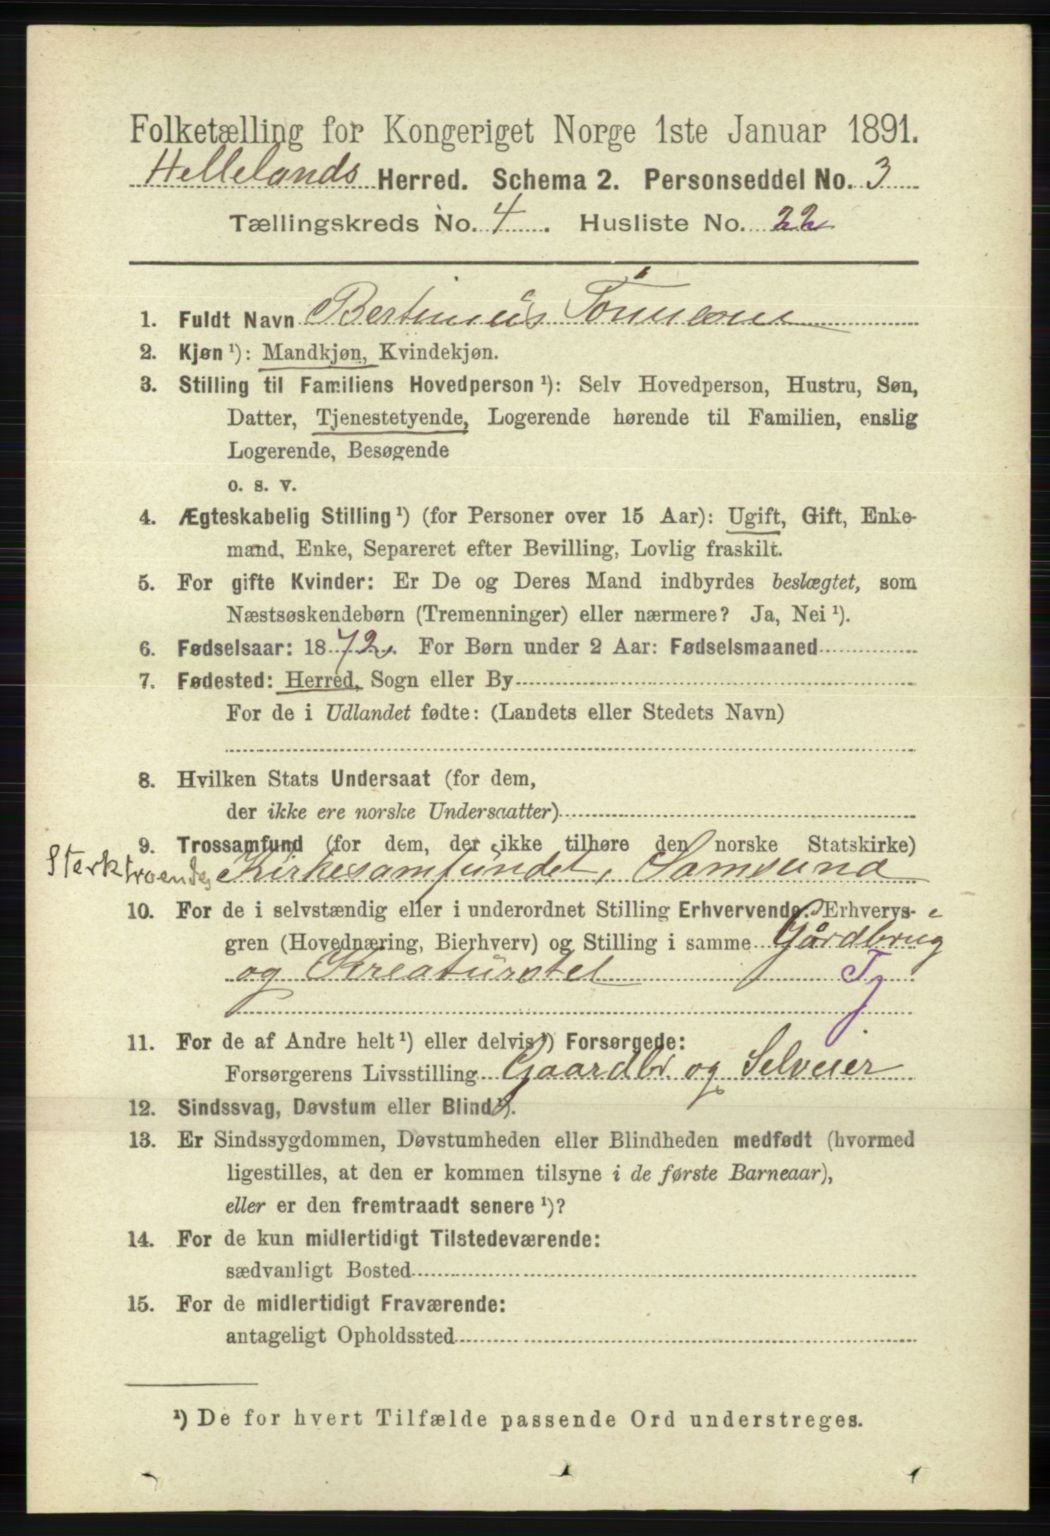 Folketælling for Kongeriget Norge 1ste Januar 1891.
Hellelands Herred. Schema 2. Personseddel No. 3
Tællingskreds No. 4. Husliste No. 22
1. Fuldt Navn Bertinius
2. Kjøn ¹): Mandkjøn, Kvindekjøn.
3. Stilling til Familiens Hovedperson ¹): Selv Hovedperson, Hustru, Søn,
Datter, Tjenestetyende, Logerende hørende til Familien, enslig
Logerende, Besøgende
o. s. v.
4. Ægteskabelig Stilling ¹) (for Personer over 15 Aar): Ugift, Gift, Enke-
mand, Enke, Separeret efter Bevilling, Lovlig fraskilt.
5. For gifte Kvinder: Er De og Deres Mand indbyrdes beslægtet, som
Næstsøskendebørn (Tremenninger) eller nærmere? Ja, Nei ¹).
6. Fødselsaar: 1872. For Børn under 2 Aar: Fødselsmaaned
7. Fødested: Herred, Sogn eller By
For de i Udlandet fødte: (Landets eller Stedets Navn)
8. Hvilken Stats Undersaat (for dem,
der ikke ere norske Undersaatter)
9. Trossamfund (for dem, der ikke tilhøre den norske Statskirke)
Sterktroende Kirkesamfundet, Samsund
10. For de i selvstændig eller i underordnet Stilling Erhvervende: Erhvervs-
gren (Hovednæring, Bierhverv) og Stilling i samme Gårdbrug
og Kreaturstel Tj
11. For de af Andre helt ¹) eller delvis ¹) Forsørgede:
Forsørgerens Livsstilling Gaardbr. og Selveier
12. Sindssvag, Døvstum eller Blind ¹).
13. Er Sindssygdommen, Døvstumheden eller Blindheden medfødt (hvormed
ligestilles, at den er kommen tilsyne i de første Barneaar),
eller er den fremtraadt senere ¹)?
14. For de kun midlertidigt Tilstedeværende:
sædvanligt Bosted
15. For de midlertidigt Fraværende:
antageligt Opholdssted
¹) De for hvert Tilfælde passende Ord understreges.